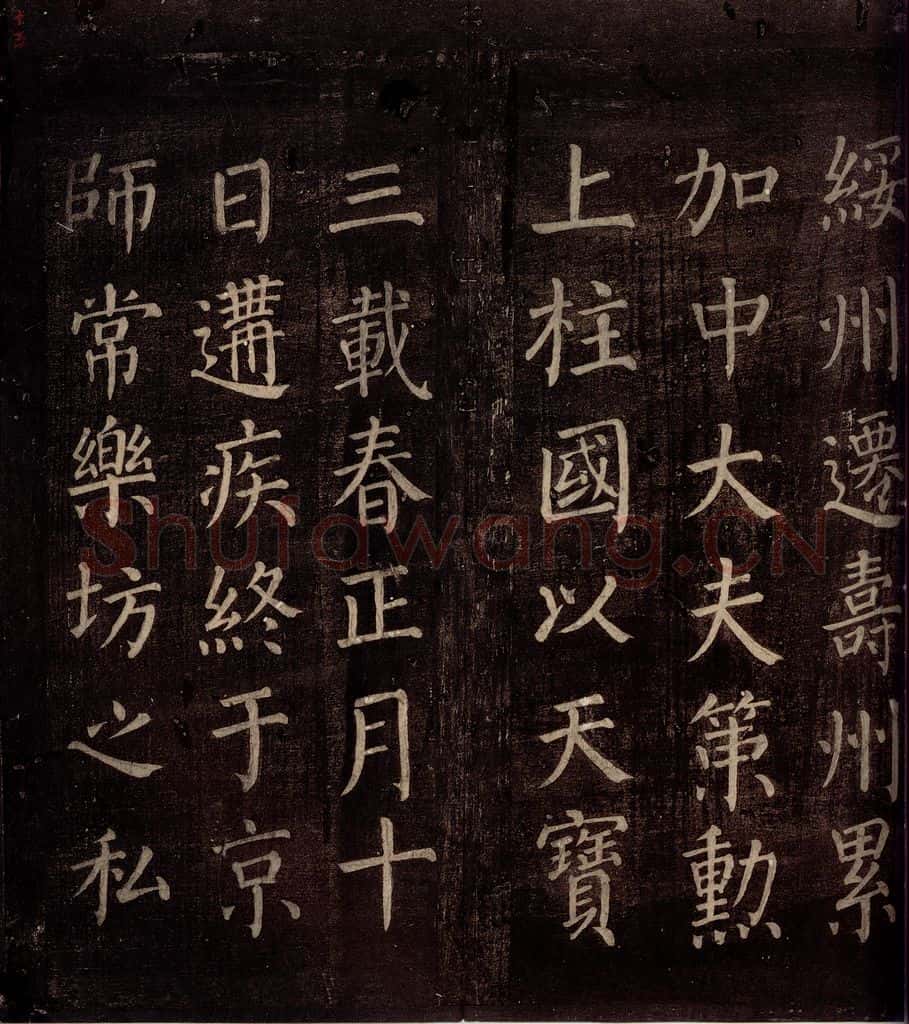 綏州遷壽州累
加中大夫策勳
上柱國以天寶
三載春正月十
日遘疾終于京
師常樂坊之私
Shufawang.CN